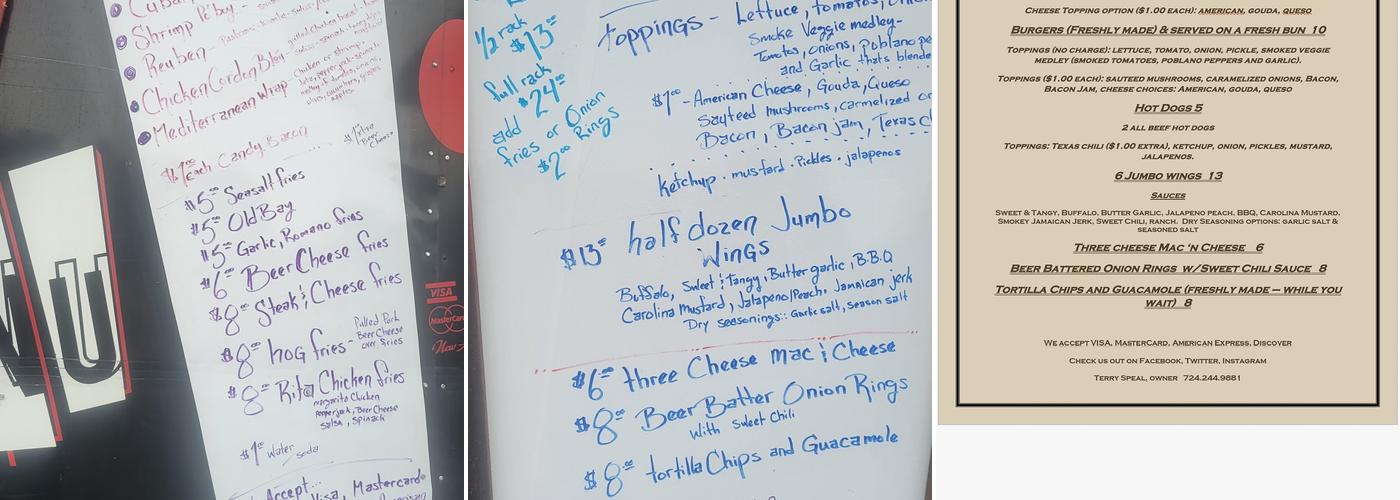 Cuban
Shrimp Po'boy -
Reuben -
Chicken Cordon Bleu -
Mediterranean Wrap - Chicken or shrimp,
$1.00 each Candy Bacon
$1 extra
Beer
Cheese
$5.00 Seasalt fries
$5.00 Old Bay
$5.00 Garlic, Romano fries
$6.00 Beer Cheese fries
$8.00 Steak & Cheese fries
$8.00 hog fries - Pulled Pork
Beer Cheese
over fries
$8.00 Rita Chicken fries
margarita Chicken
pepperjack, Beer Cheese
salsa, spinach
$1.00 water
soda
Accept...
Visa, Mastercard
VISA
MasterCard
NU
1/2 rack
$13.00
full rack
$24.00
add
fries or Onion
Rings
$2.00
toppings - Lettuce, tomatos, onion
Smoke Veggie medley-
Tomatos, onions, Poblano pe
and Garlic thats blende
$1.00 - American Cheese, Gouda, Queso
Sauteed mushrooms, carmelized on
Bacon, Bacon jam, Texas C
Ketchup . mustard . Pickles . jalapenos
$13.00 half dozen Jumbo
Wings
Buffalo, Sweet & Tangy, Butter garlic, B.B.Q
Carolina Mustard, Jalapeno/Peach. Jamaican jerk
Dry seasonings:: Garlic salt, season salt
$6.00 three Cheese mac & Cheese
$8.00 Beer Batter Onion Rings
With Sweet Chili
$8.00 tortilla Chips and Guacamole
Cheese Topping option ($1.00 each): american, gouda, queso
Burgers (Freshly made) & served on a fresh bun 10
Toppings (no charge): lettuce, tomato, onion, pickle, smoked veggie
medley (smoked tomatoes, poblano peppers and garlic).
Toppings ($1.00 each): sauteed mushrooms, caramelized onions, Bacon,
Bacon Jam, cheese choices: American, gouda, queso
Hot Dogs 5
2 all beef hot dogs
Toppings: Texas chili ($1.00 extra), ketchup, onion, pickles, mustard,
jalapenos.
6 Jumbo wings 13
Sauces
Sweet & Tangy, Buffalo, Butter Garlic, Jalapeno peach, BBQ, Carolina Mustard,
Smokey Jamaican Jerk, Sweet Chili, Ranch. Dry Seasoning options: garlic salt &
seasoned salt
Three cheese Mac 'n Cheese 6
Beer Battered Onion Rings w/Sweet Chili Sauce 8
Tortilla Chips and Guacamole (freshly made – while you
wait) 8
We accept VISA, MasterCard, American Express, Discover
Check us out on Facebook, Twitter, Instagram
Terry Speal, owner 724.244.9881